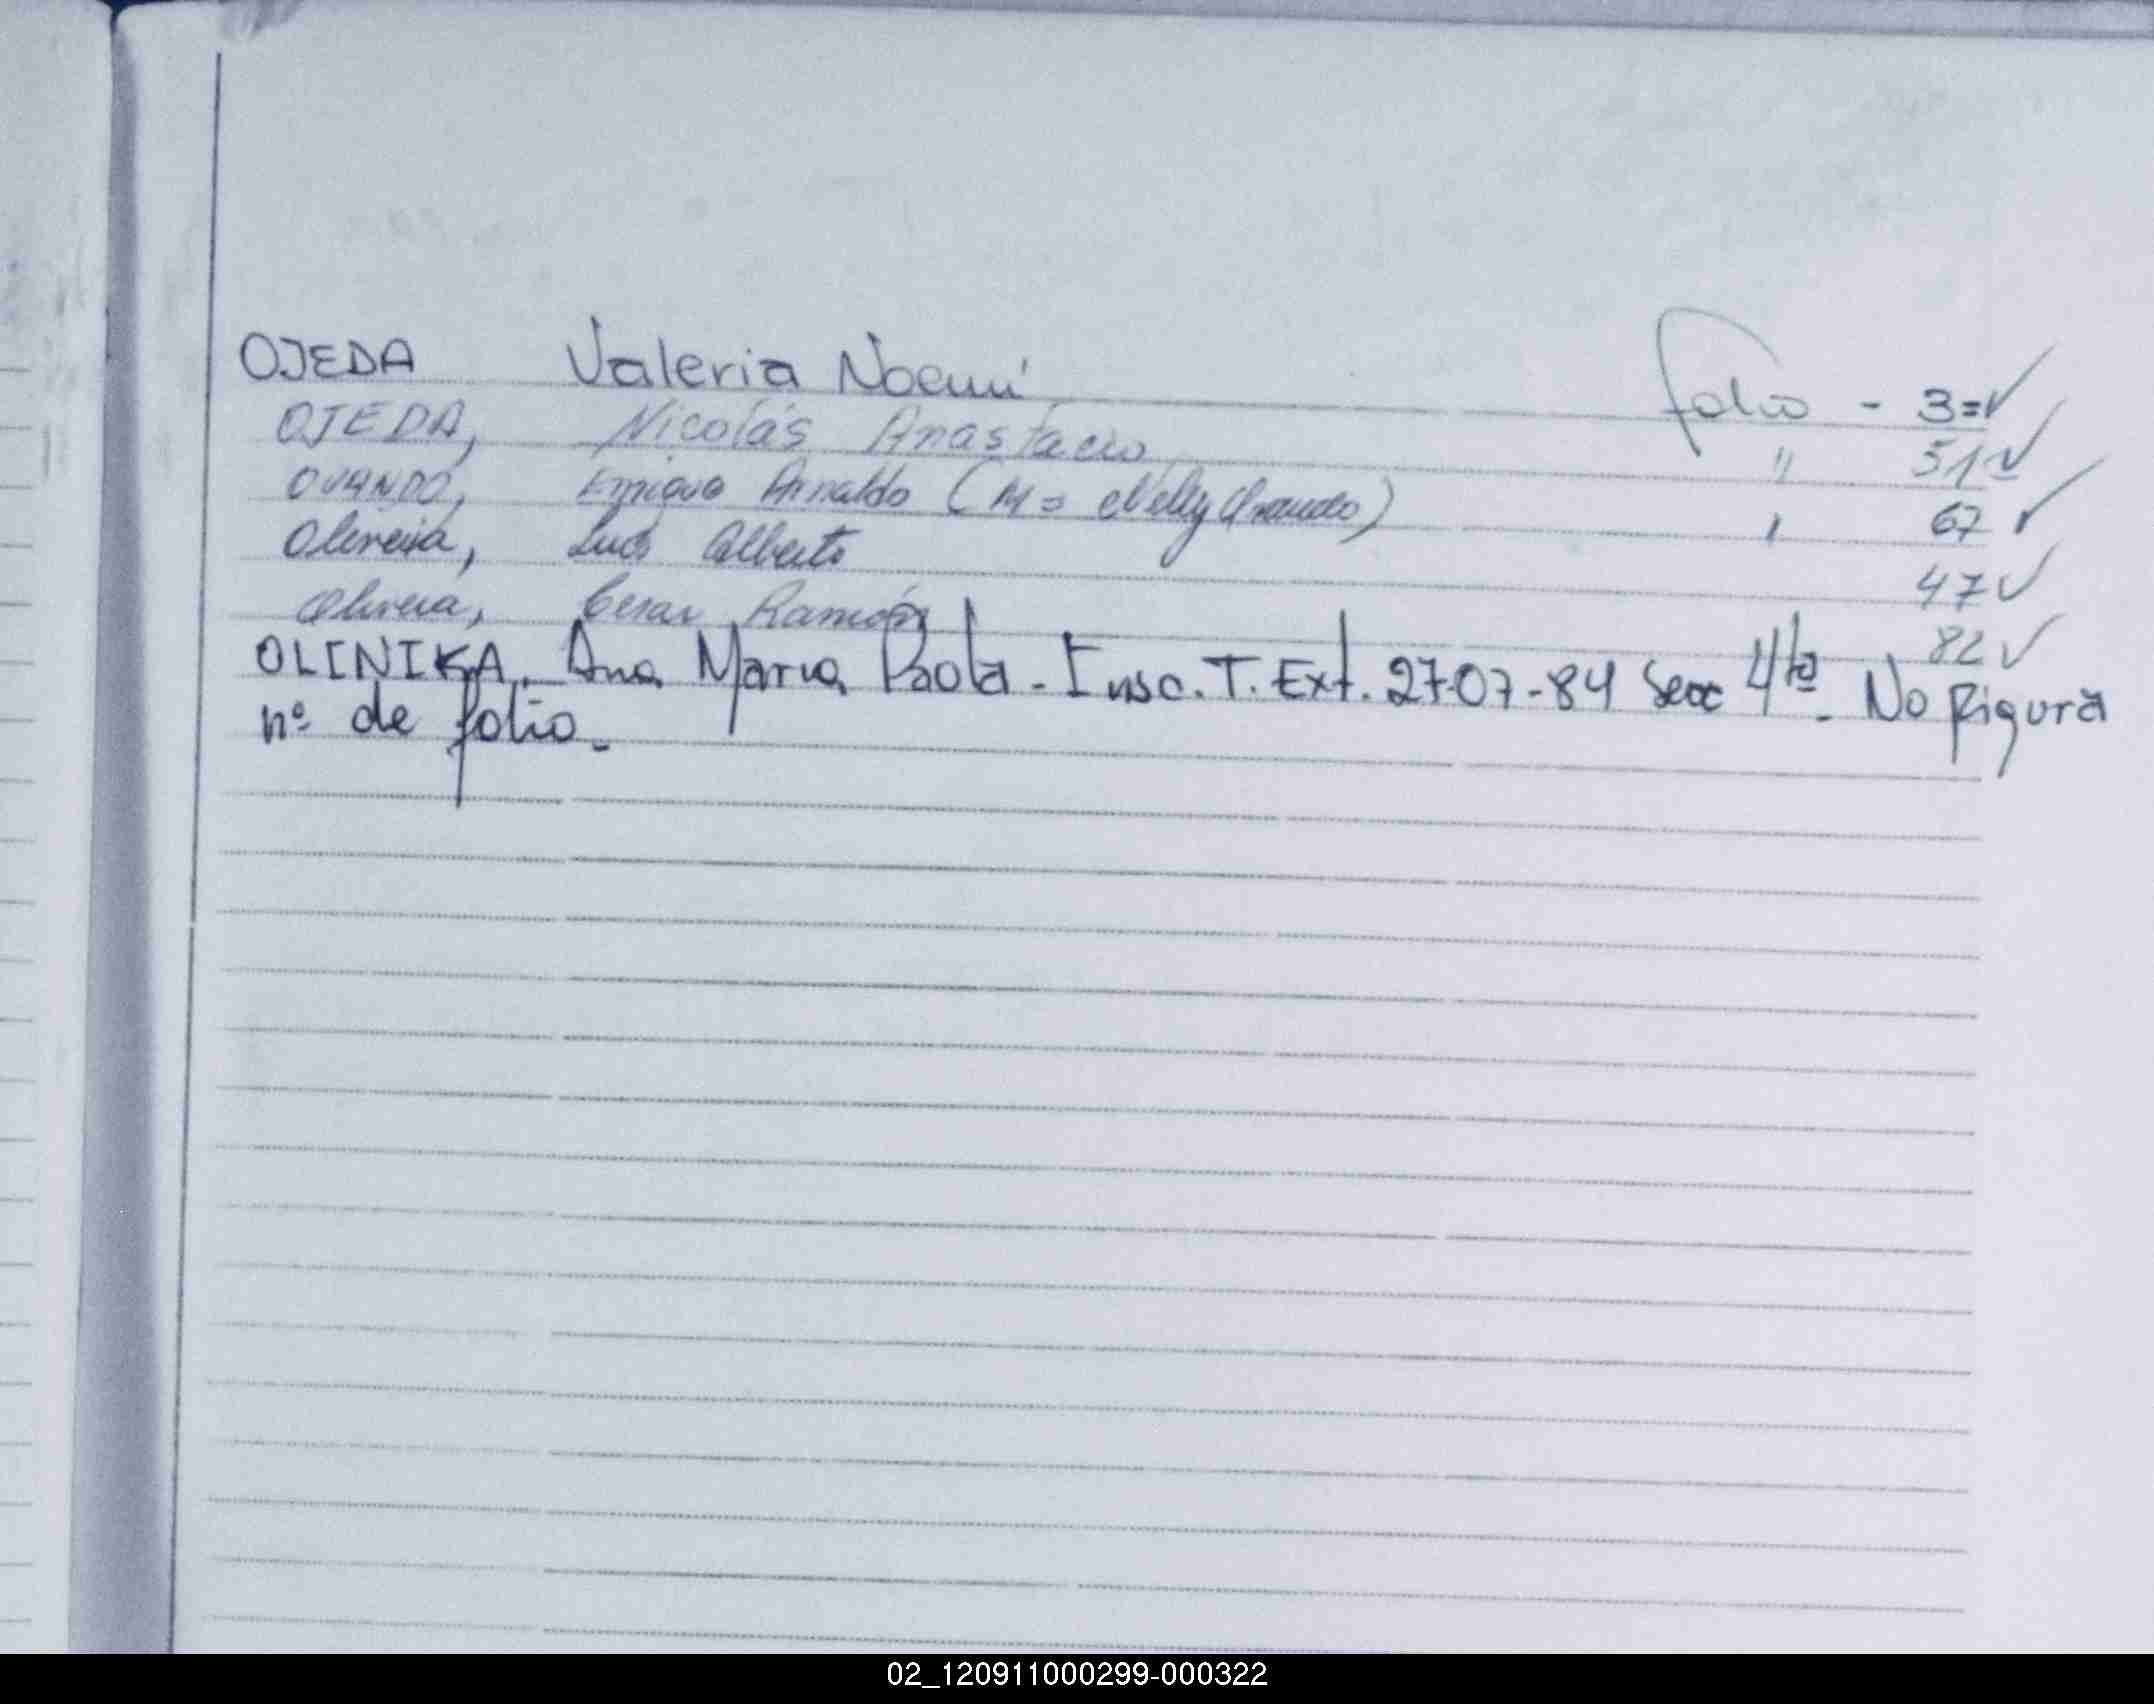 OJEDA Valeria Noemí folio - 3=✓
OJEDA, Nicolás Anastacio " 51✓
OVANDO, Enrique Arnaldo (M= Nelly Ovando) " 67 ✓
Oliveira, Luis Alberto 47✓
Olivera, Cesar Ramón 82✓
OLINIKA, Ana Maria Paola - Insc. T. Ext. 27-07-84 Secc 4ta - No figura
nº de folio -
02_120911000299-000322